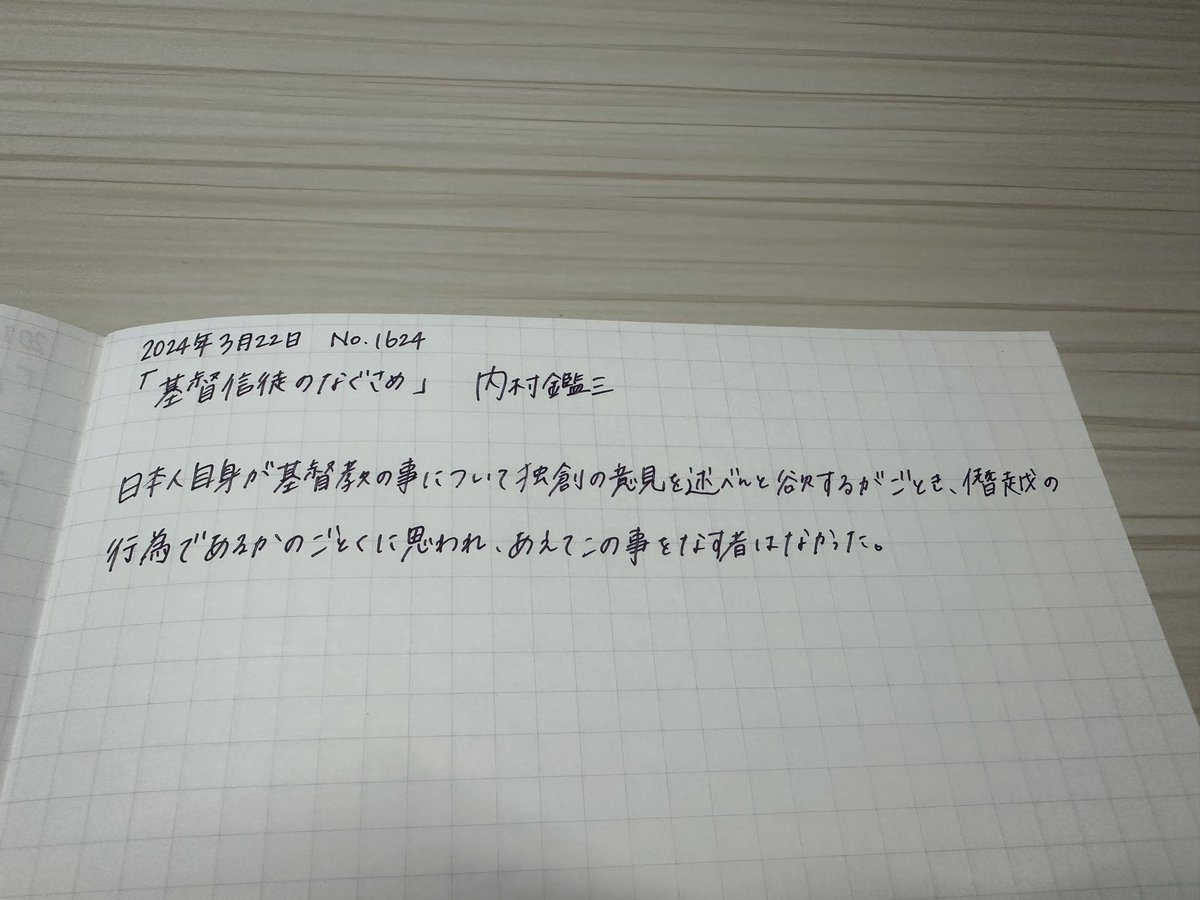 2024年3月22日 No.1624
「基督信徒のなぐさめ」 内村鑑三
日本人自身が基督教の事について独創の意見を述べんと欲するがごとき、僭越の
行為であるかのごとくに思われ、あえてこの事をなす者はなかった。